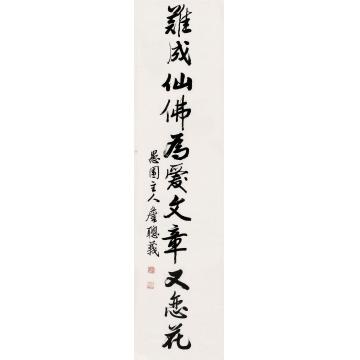 難成仙佛為愛文章又戀花
愚園主人詹聰義